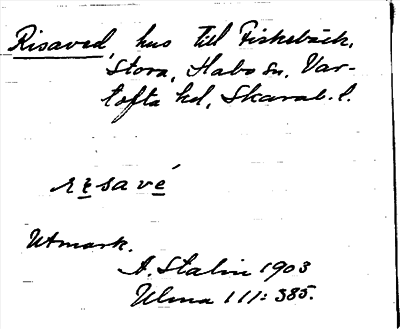 Risaved, hus till Fiskebäck,
Stora, Habo sn, Var-
tofta hd, Skarab. l.
rɛsavé
Utmark.
A. Stalin 1903
Ulma 111:385.